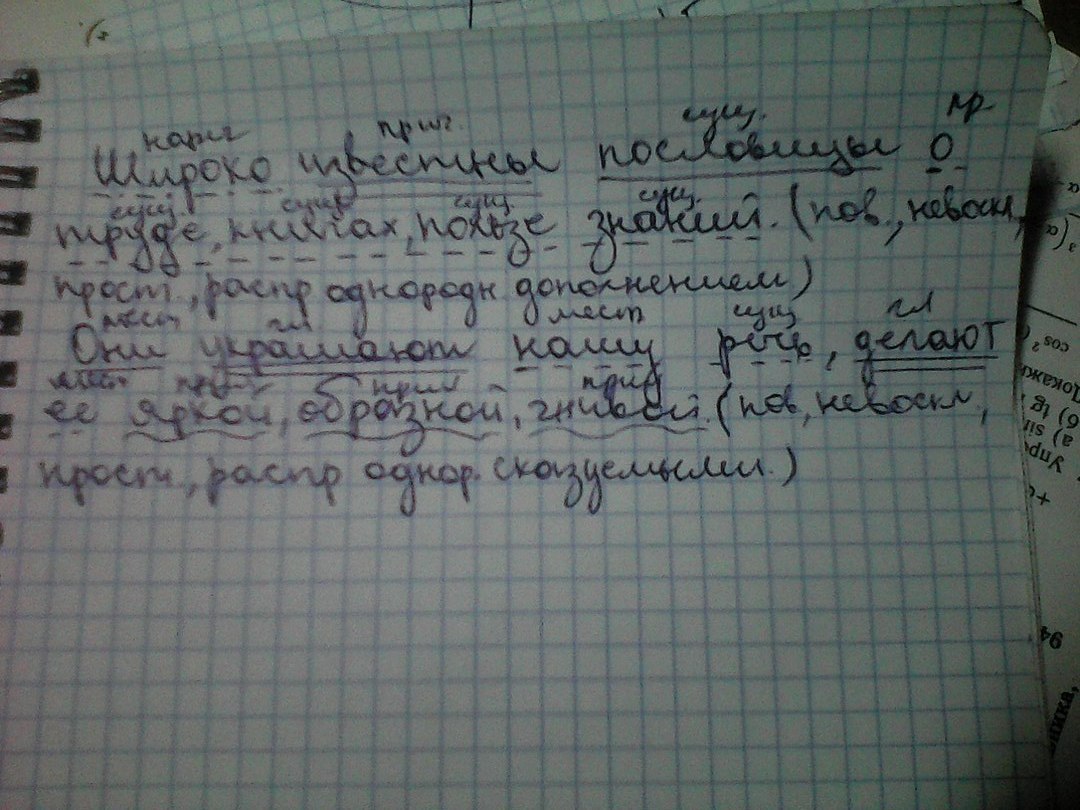 нареч прил. сущ. пр
Широко известны пословицы о
сущ. сущ сущ. сущ.
труде, книгах, пользе знаний. (пов., невоскл,
прост, распр однородн дополнением)
мест гл мест сущ гл
Они украшают нашу речь, делают
мест прил прил прил
её яркой, образной, живой. (пов, невоскл,
прост, распр однор. сказуемыми.)
94